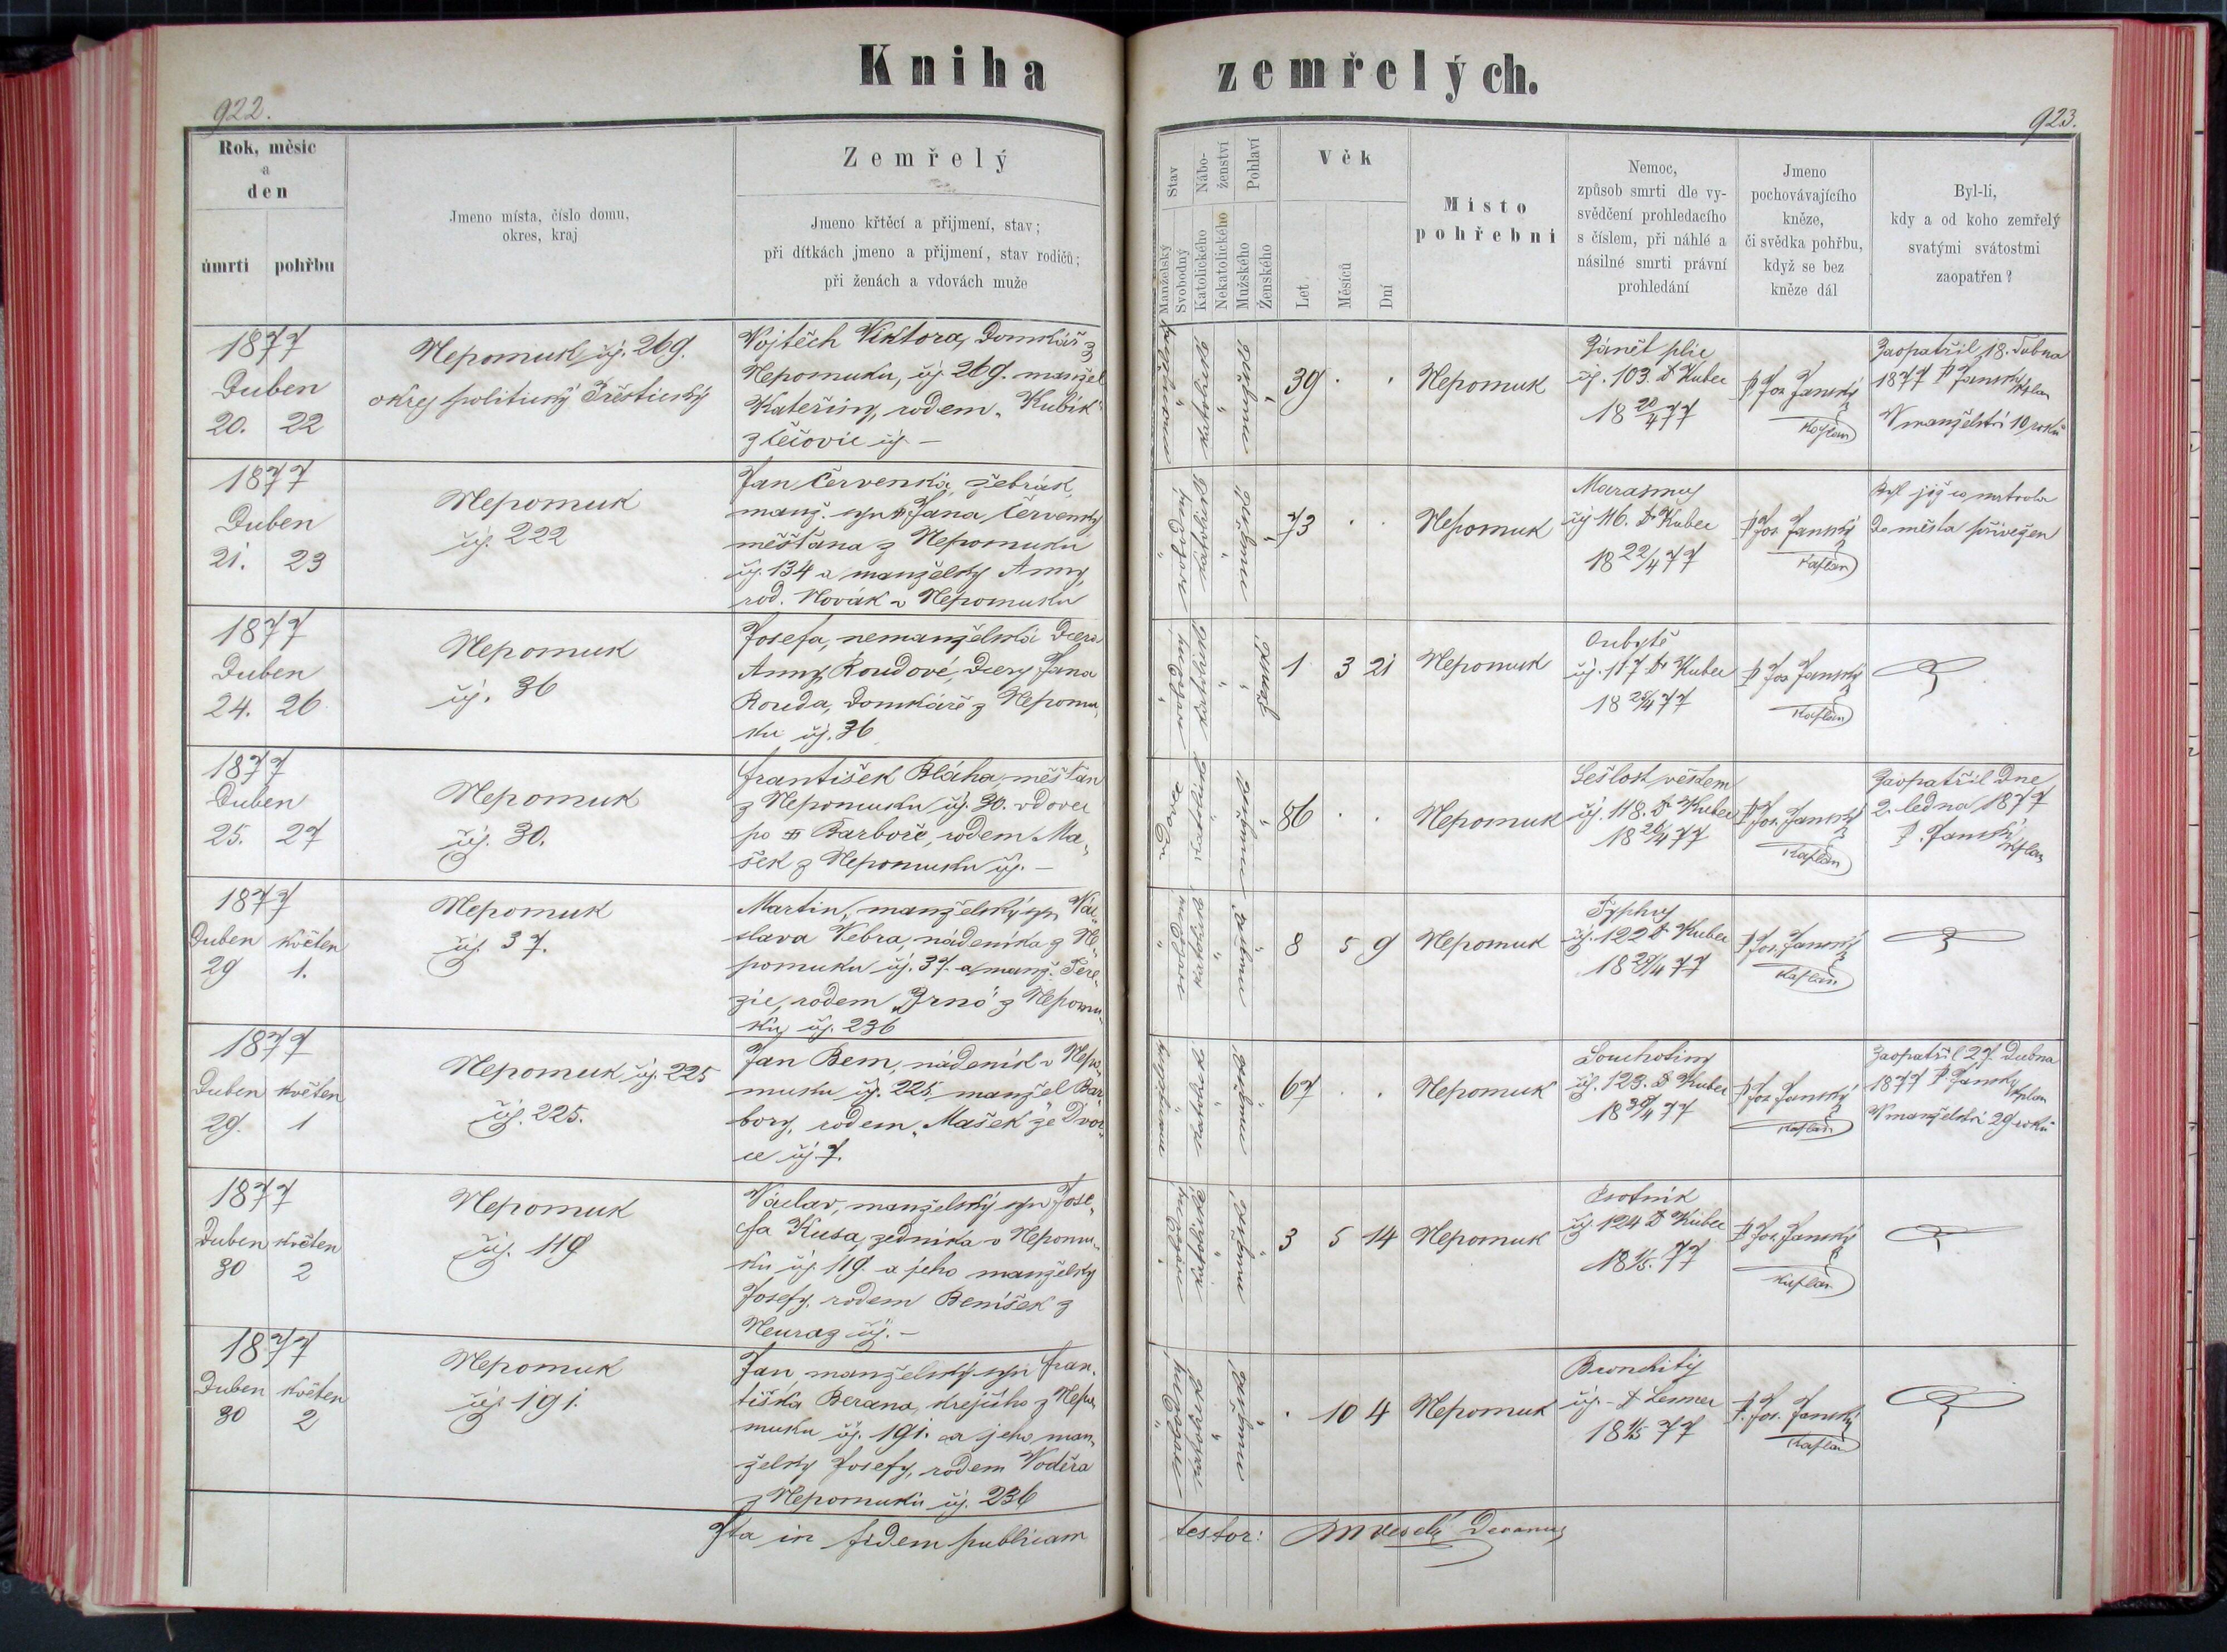 Kniha zemřelých.
922.
923.
Rok, měsíc
a
den
úmrtí pohřbu
Jmeno místa, číslo domu,
okres, kraj
Zemřelý
Jmeno křtěcí a přijmení, stav;
při dítkách jmeno a přijmení, stav rodičů;
při ženách a vdovách muže
Stav
Manželský
Svobodný
Nábo-
ženství
Katolického
Nekatolického
Pohlaví
Mužského
Ženského
Věk
Let
Měsíců
Dní
Místo
pohřební
Nemoc,
způsob smrti dle vy-
svědčení prohledacího
s číslem, při náhlé a
násilné smrti právní
prohledání
Jmeno
pochovávajícího
kněze,
či svědka pohřbu,
když se bez
kněze dál
Byl-li,
kdy a od koho zemřelý
svatými svátostmi
zaopatřen?
1877
Duben
20. 22
Nepomuk čj. 269.
okres politický Přeštický
Vojtěch Viktora, Domkář z
Nepomuku, čj. 269. manžel
Kateřiny, rodem „Kubík“
z čj. –
39 . .
Nepomuk
Zánět plic
čj. 103. Dr Kubec
18 20/4 77
P Jos Janský
Kaplan
Zaopatřil 18. Dubna
1877 P Janský Kplan
V manželství 10 roků
1877
Duben
21. 23
Nepomuk
čj. 222
Jan Červenka, žebrák,
manž. syn Jana Červenky
měšťana z Nepomuku
čj. 134 a manželky Anny,
rod. Novák z Nepomuku
73 . .
Nepomuk
Marasmus
čj 116. Dr Kubec
18 22/4 77
P Jos. Janský
Kaplan
Byl již co mrtvola
Do města přivežen
1877
Duben
24. 26
Nepomuk
čj. 36
Josefa, nemanželská Dcera
Anny Roudové, Dcery Jana
Rouda, Domkáře z Nepomu„
ku čj. 36
1 3 21
Nepomuk
Oubytě
čj. 117 Dr Kubec
P Jos Janský
Kaplan
1877
Duben
25. 27
Nepomuk
čj. 30.
František Bláha, měšťan
z Nepomuku čj. 30. vdovec
po Barboře, rodem Ma„
šek z Nepomuku čj. –
86 . .
Nepomuk
Sešlost věkem
čj. 118. Dr Kubec
18 26/4 77
P Jos. Janský
Kaplan
Zaopatřil Dne
2. ledna 1877
P. Janský Kplan
1877
Duben květen
29 1.
Nepomuk
čj. 37.
Martin, manželský syn Vác„
slava Vebra, nádeníka z Ne„
pomuku čj. 37. a manž. Tere„
zie, rodem „Zrno“ z Nepomu„
ku čj. 236
8 5 9
Nepomuk
Typhus
čj. 122 Dr Kubec
18 29/4 77
P Jos. Janský
Kaplan
1877
Duben květen
29. 1
Nepomuk čj. 225
čj. 225.
Jan Bem, nádeník v Nepo„
muku čj. 225. manžel Bar„
bory, rodem „Mašek“ ze Dvor„
ce čj 7.
67 . .
Nepomuk
Souchotiny
čj. 123. Dr Kubec
18 30/4 77
P Jos Janský
Kaplan
Zaopatřil 27. Dubna
1877 P Janský Kplan
V manželství 29 roků
1877
Duben květen
30 2
Nepomuk
čj. 119
Václav, manželský syn Jose„
fa Kusa, zedníka v Nepomu„
ku čj. 119. a jeho manželky
Josefy, rodem Benišek z
Neuraz čj. –
3 5 14
Nepomuk
Psotník
čj. 124 Dr Kubec
18 1/5. 77
P Jos. Janský
Kaplan
1877
Duben květen
30 2
Nepomuk
čj. 191.
Jan, manželský syn Fran„
tiška Berana, krejčího z Nepo„
muku čj. 191. a jeho man„
želky Josefy, rodem Voděra
z Nepomuku čj. 236
. 10 4
Nepomuk
Bronchitis
čj. – Dr
18 1/5 77
P. Jos. Janský
Kaplan
Ita in fidem publicam testor: Decanus